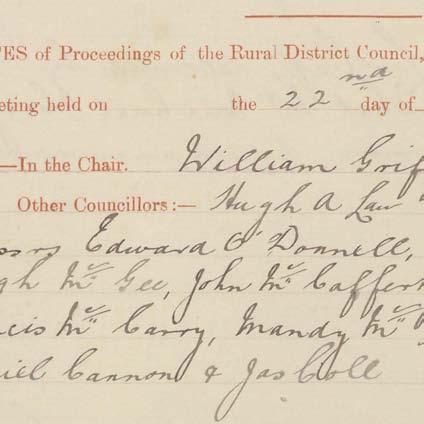 TES of Proceedings of the Rural District Council,
eeting held on the 22nd day of
—In the Chair. William Grif
Other Councillors:— Hugh A Law
ssrs Edward O'Donnell,
ugh McGee, John McCaffer
ncis McCarry, Mandy Mc
niel Cannon & Jas Coll